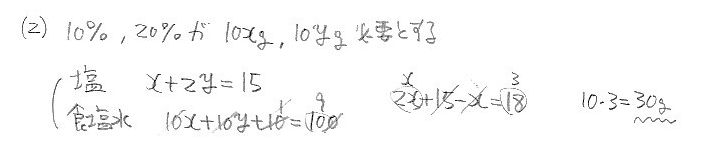 (2) 10%, 20% が 10xg, 10yg 必要とする
塩 x+2y=15
食塩水 10x+10y+10=100 1 9
2x+15-x=18 x 3
10・3=30g